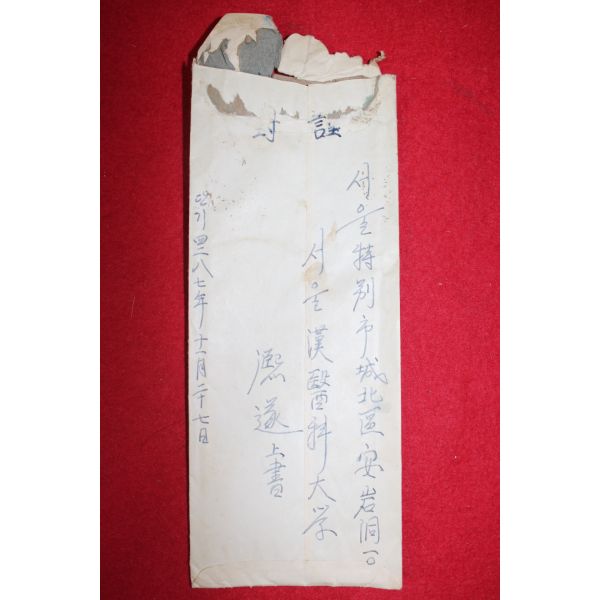 註
서울特別市城北區安岩洞一〇
서울漢醫科大学
上書
단기四二八七年十一月二十七日